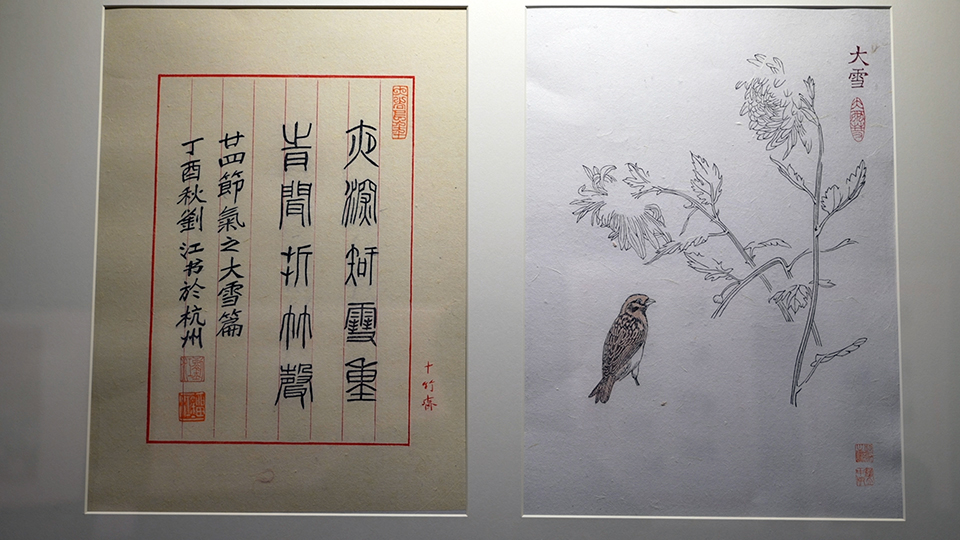 夜深知雪重
旹聞折竹聲
廿四節氣之大雪篇
丁酉秋劉江书於杭州
十竹齋
大雪